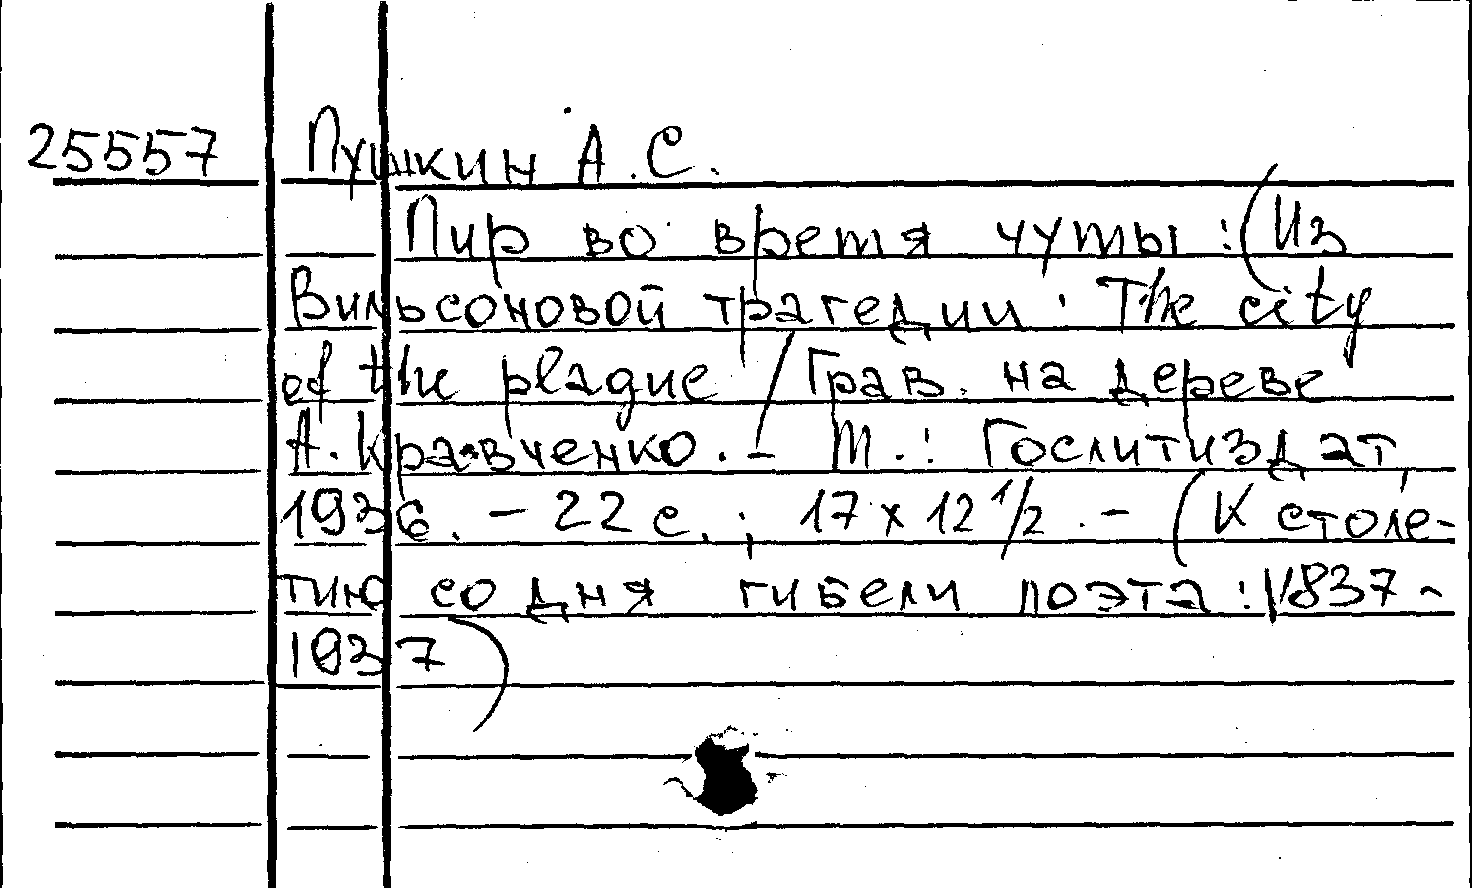 25557 Пушкин А.С.
Пир во время чумы : (Из
Вильсоновой трагедии : The city
of the plague / Грав. на дереве
А. Кравченко. – М. : Гослитиздат,
1936. – 22 с. ; 17 x 12 1/2. – (К столе-
тию со дня гибели поэта : 1837 –
1937)